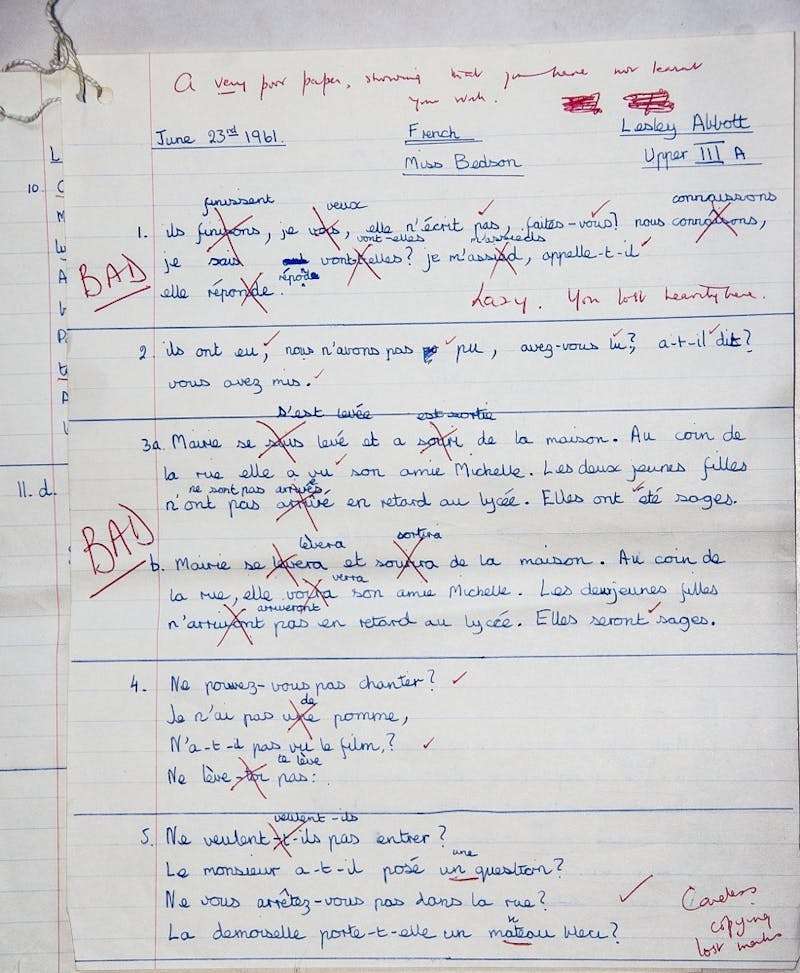 A very poor paper, showing that you have not learnt
your work.
June 23rd 1961. French Lesley Abbott
Miss Bedson Upper III A
L
10. C
finissent veux connaissons
1. ils finisons, je vous, elle n'écrit pas, faites-vous? nous connaisons,
vont-elles m'assieds
je sais vont-elles? je m'assied, appelle-t-il
BAD
répond
elle réponde.
Lazy. You lost heavily here.
2. ils ont eu, nous n'avons pas pu, avez-vous lu?, a-t-il dit?
vous avez mis.
s'est levée est sortie
3a. Mairie se sous levé et a souri de la maison. Au coin de
la rue elle a vu son amie Michelle. Les deux jeunes filles
ne sont pas arrivés
n'ont pas arrivé en retard au lycée. Elles ont été sages.
11. d.
BAD
lèvera sortira
b. Mairie se levera et soutira de la maison. Au coin de
verra
la rue, elle voira son amie Michelle. Les deuxjeunes filles
arriveront
n'arrivont pas en retard au lycée. Elles seront sages.
4. Ne pouvez-vous pas chanter?
de
Je n'ai pas une pomme,
N'a-t-il pas vu le film,?
te lève
Ne lève-toi pas:
veulent-ils
5. Ne veulent-t-ils pas entrer?
une
Le monsieur a-t-il posé un question?
Ne vous arrêtez-vous pas dans la rue?
n
La demoiselle porte-t-elle un mateau bleu?
Careless
copying
lost marks